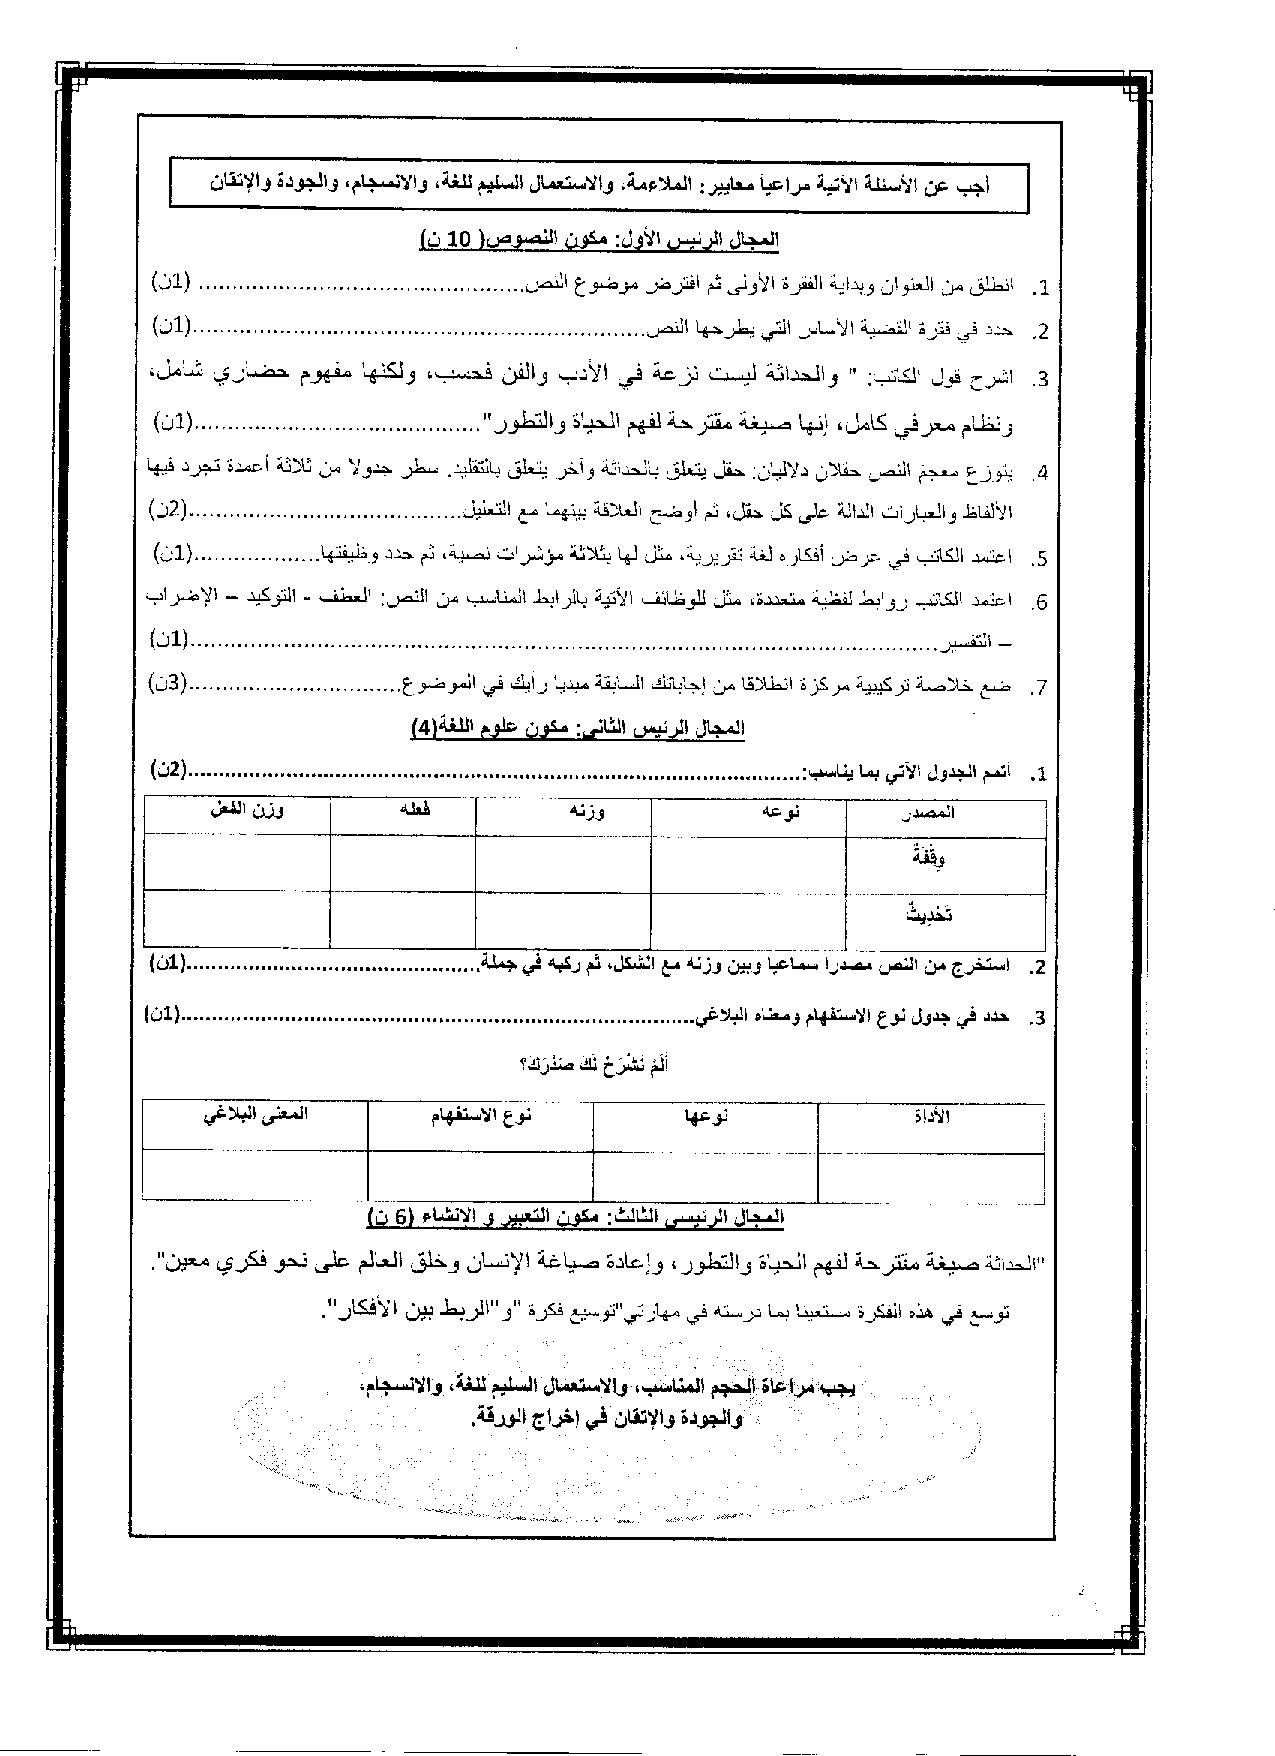 أجب عن الأسئلة الآتية مراعياً معايير: الملاءمة، والاستعمال السليم للغة، والانسجام، والجودة والإتقان
المجال الرئيس الأول: مكون النصوص( 10 ن)
1. انطلق من العنوان وبداية الفقرة الأولى ثم افترض موضوع النص................................................ (1ن)
2. حدد في فقرة القضية الأساس التي يطرحها النص....................................................................(1ن)
3. اشرح قول الكاتب: " والحداثة ليست نزعة في الأدب والفن فحسب، ولكنها مفهوم حضاري شامل،
ونظام معرفي كامل، إنها صيغة مقترحة لفهم الحياة والتطور"...........................................(1ن)
4. يتوزع معجم النص حقلان دلاليان: حقل يتعلق بالحداثة وآخر يتعلق بالتقليد. سطر جدولا من ثلاثة أعمدة تجرد فيها
الألفاظ والعبارات الدالة على كل حقل، ثم أوضح العلاقة بينهما مع التعليل.........................................(2ن)
5. اعتمد الكاتب في عرض أفكاره لغة تقريرية، مثل لها بثلاثة مؤشرات نصية، ثم حدد وظيفتها...................(1ن)
6. اعتمد الكاتب روابط لفظية متعددة، مثل للوظائف الآتية بالرابط المناسب من النص: العطف - التوكيد – الإضراب
– التفسير................................................................................................................(1ن)
7. ضع خلاصة تركيبية مركزة انطلاقا من إجاباتك السابقة مبديا رأيك في الموضوع................................(3ن)
المجال الرئيس الثاني: مكون علوم اللغة(4)
1. أتمم الجدول الآتي بما يناسب:....................................................................................................(2ن)
المصدر نوعه وزنه فعله وزن الفعل
وِقْفَةٌ
تَحْدِيثٌ
2. استخرج من النص مصدرا سماعيا وبين وزنه مع الشكل، ثم ركبه في جملة................................................(1ن)
3. حدد في جدول نوع الاستفهام ومعناه البلاغي....................................................................................(1ن)
أَلَمْ نَشْرَحْ لَكَ صَدْرَكَ؟
الأداة نوعها نوع الاستفهام المعنى البلاغي
المجال الرئيسي الثالث: مكون التعبير و الانشاء (6 ن)
"الحداثة صيغة مقترحة لفهم الحياة والتطور، وإعادة صياغة الإنسان وخلق العالم على نحو فكري معين".
توسع في هذه الفكرة مستعينا بما درسته في مهارتي"توسيع فكرة "و"الربط بين الأفكار".
يجب مراعاة الحجم المناسب، والاستعمال السليم للغة، والانسجام،
والجودة والإتقان في إخراج الورقة.